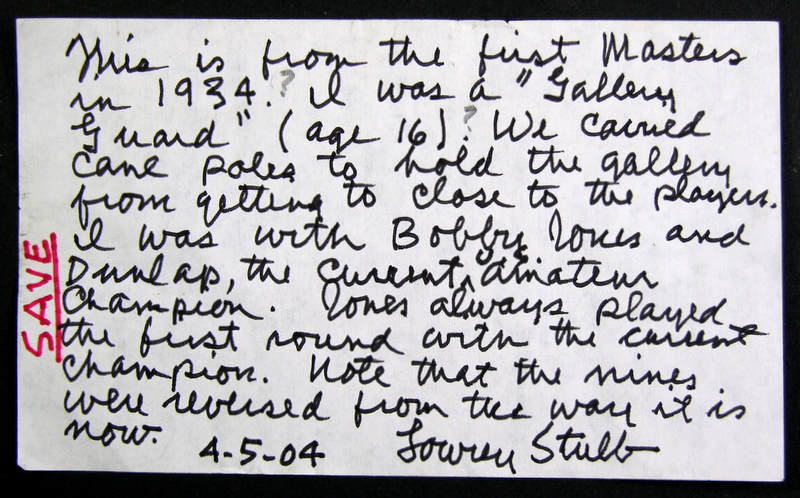 This is from the first Masters
in 1934.? I was a "Gallery
Guard" (age 16)? We carried
cane poles to hold the gallery
from getting to close to the players.
I was with Bobby Jones and
Dunlap, the current, U.S. Amateur
Champion. Jones always played
the first round with the current
champion. Note that the nines
were reversed from the way it is
now.
4-5-04 Lowrey Stulb
SAVE